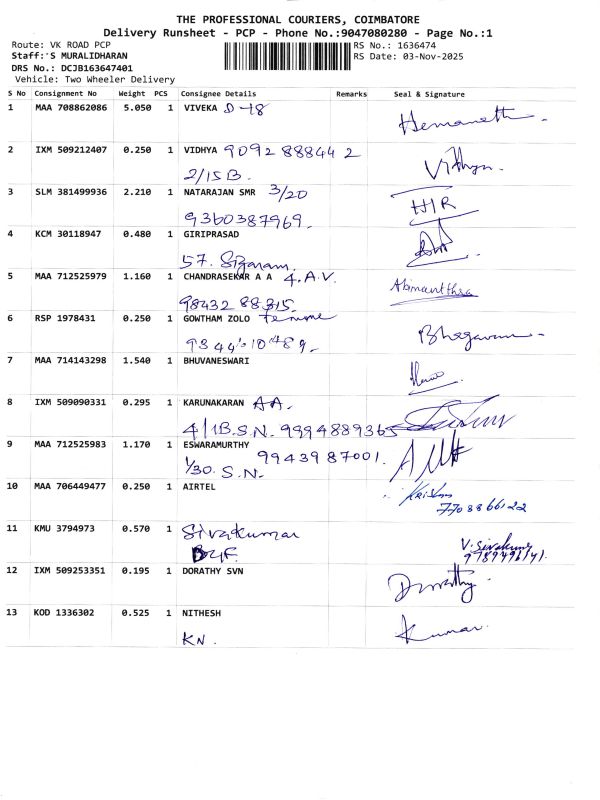 THE PROFESSIONAL COURIERS, COIMBATORE
Delivery Runsheet - PCP - Phone No.:9047080280 - Page No.:1
Route: VK ROAD PCP RS No.: 1636474
Staff:'S MURALIDHARAN RS Date: 03-Nov-2025
DRS No.: DCJB163647401
Vehicle: Two Wheeler Delivery
S No Consignment No Weight PCS Consignee Details Remarks Seal & Signature
1 MAA 708862086 5.050 1 VIVEKA D-18
2 IXM 509212407 0.250 1 VIDHYA 9092 88844 2 Vidhya
2/15 B.
3 SLM 381499936 2.210 1 NATARAJAN SMR 3/20 HIR
9360387969.
4 KCM 30118947 0.480 1 GIRIPRASAD
57.
5 MAA 712525979 1.160 1 CHANDRASEKAR A A 4.A.V.
98432 88315.
6 RSP 1978431 0.250 1 GOWTHAM ZOLO
7 MAA 714143298 1.540 1 BHUVANESWARI
8 IXM 509090331 0.295 1 KARUNAKARAN AA.
4/1B.S.N. 9994889365
9 MAA 712525983 1.170 1 ESWARAMURTHY 9943987001.
1/30. S.N.
10 MAA 706449477 0.250 1 AIRTEL
7708866122
11 KMU 3794973 0.570 1 Sivakumar V. Sivakumar
12 IXM 509253351 0.195 1 DORATHY SVN Dorathy
13 KOD 1336302 0.525 1 NITHESH Kumar
KN.